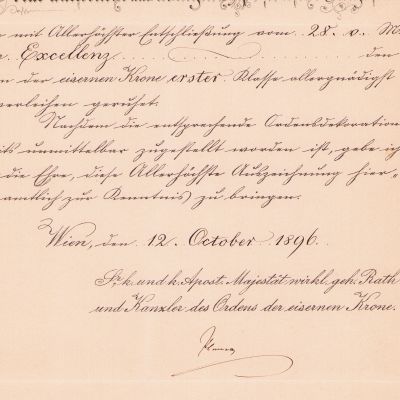 mit Allerhöchster Entschließung vom 28. v. M
Excellenz den
der eisernen Krone erster Klasse allergnädigst
verleihen geruhet.
Nachdem die entsprechende Ordensdekoration
its unmittelbar zugestellt worden ist, gebe ich
die Ehre, diese Allerhöchste Auszeichnung hier-
amtlich zur Kenntnis zu bringen.
Wien, den 12. October 1896.
Sr. k. und k. Apost. Majestät wirkl. geh. Rath
und Kanzler des Ordens der eisernen Krone.